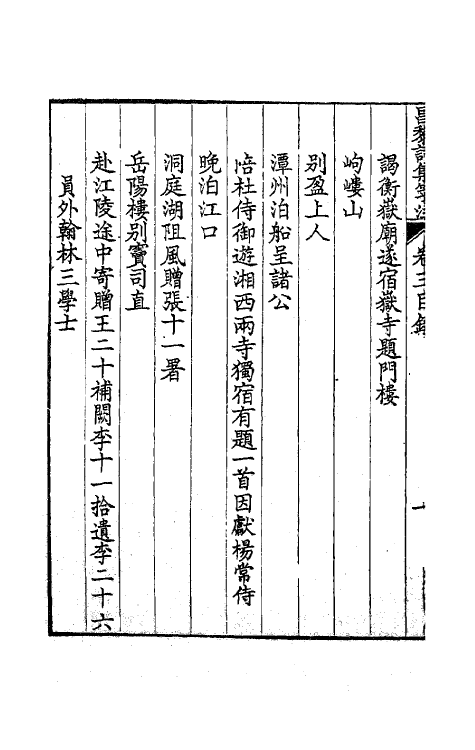 昌黎詩集箋注 卷三目錄
謁衡嶽廟遂宿嶽寺題門樓
岣嶁山
别盈上人
潭州泊船呈諸公
陪杜侍御遊湘西兩寺獨宿有題一首因獻楊常侍
晚泊江口
洞庭湖阻風贈張十一署
岳陽樓别竇司直
赴江陵途中寄贈王二十補闕李十一拾遺李二十六
員外翰林三學士